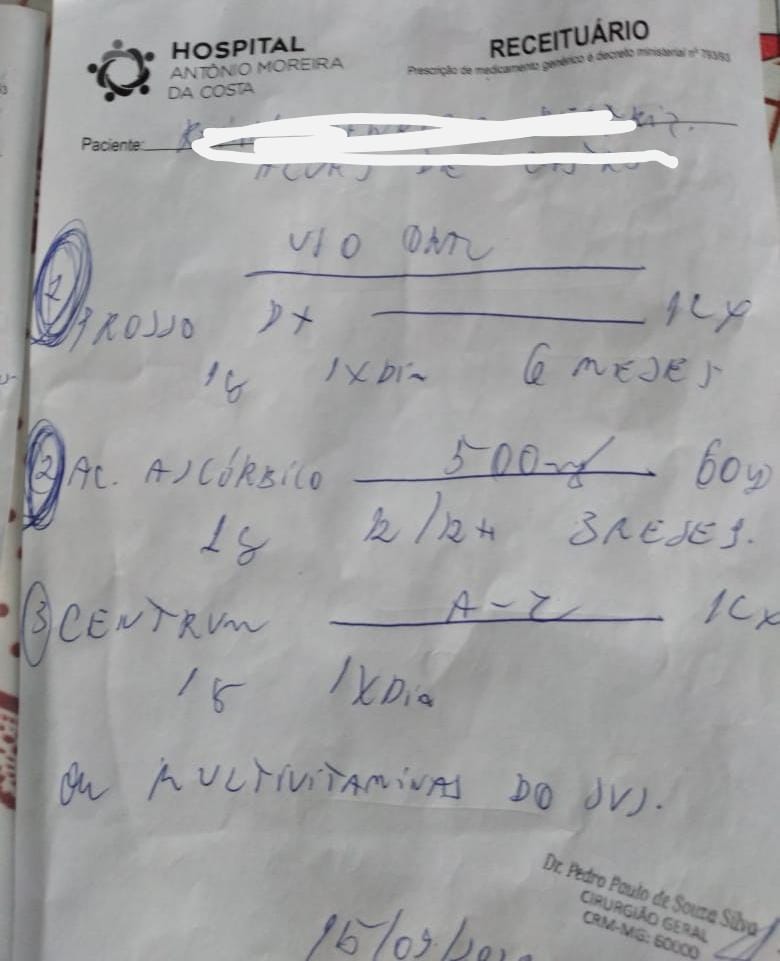 HOSPITAL
ANTÔNIO MOREIRA
DA COSTA
RECEITUÁRIO
Prescrição de medicamento genérico é decreto ministerial nº 793/93
Paciente:
VIO ORAL
1 PROSSO D+ 1CX
1 1XDIA 6 MESES
2 AC. ASCÓRBICO 500mg 60
1 12/12H 3 MESES.
3 CENTRUM A-Z 1CX
1 1XDia
OU MULTIVITAMINAS DO SUS.
Dr. Pedro Paulo de Souza Silva
CIRURGIÃO GERAL
CRM-MG: 60000
15/09/